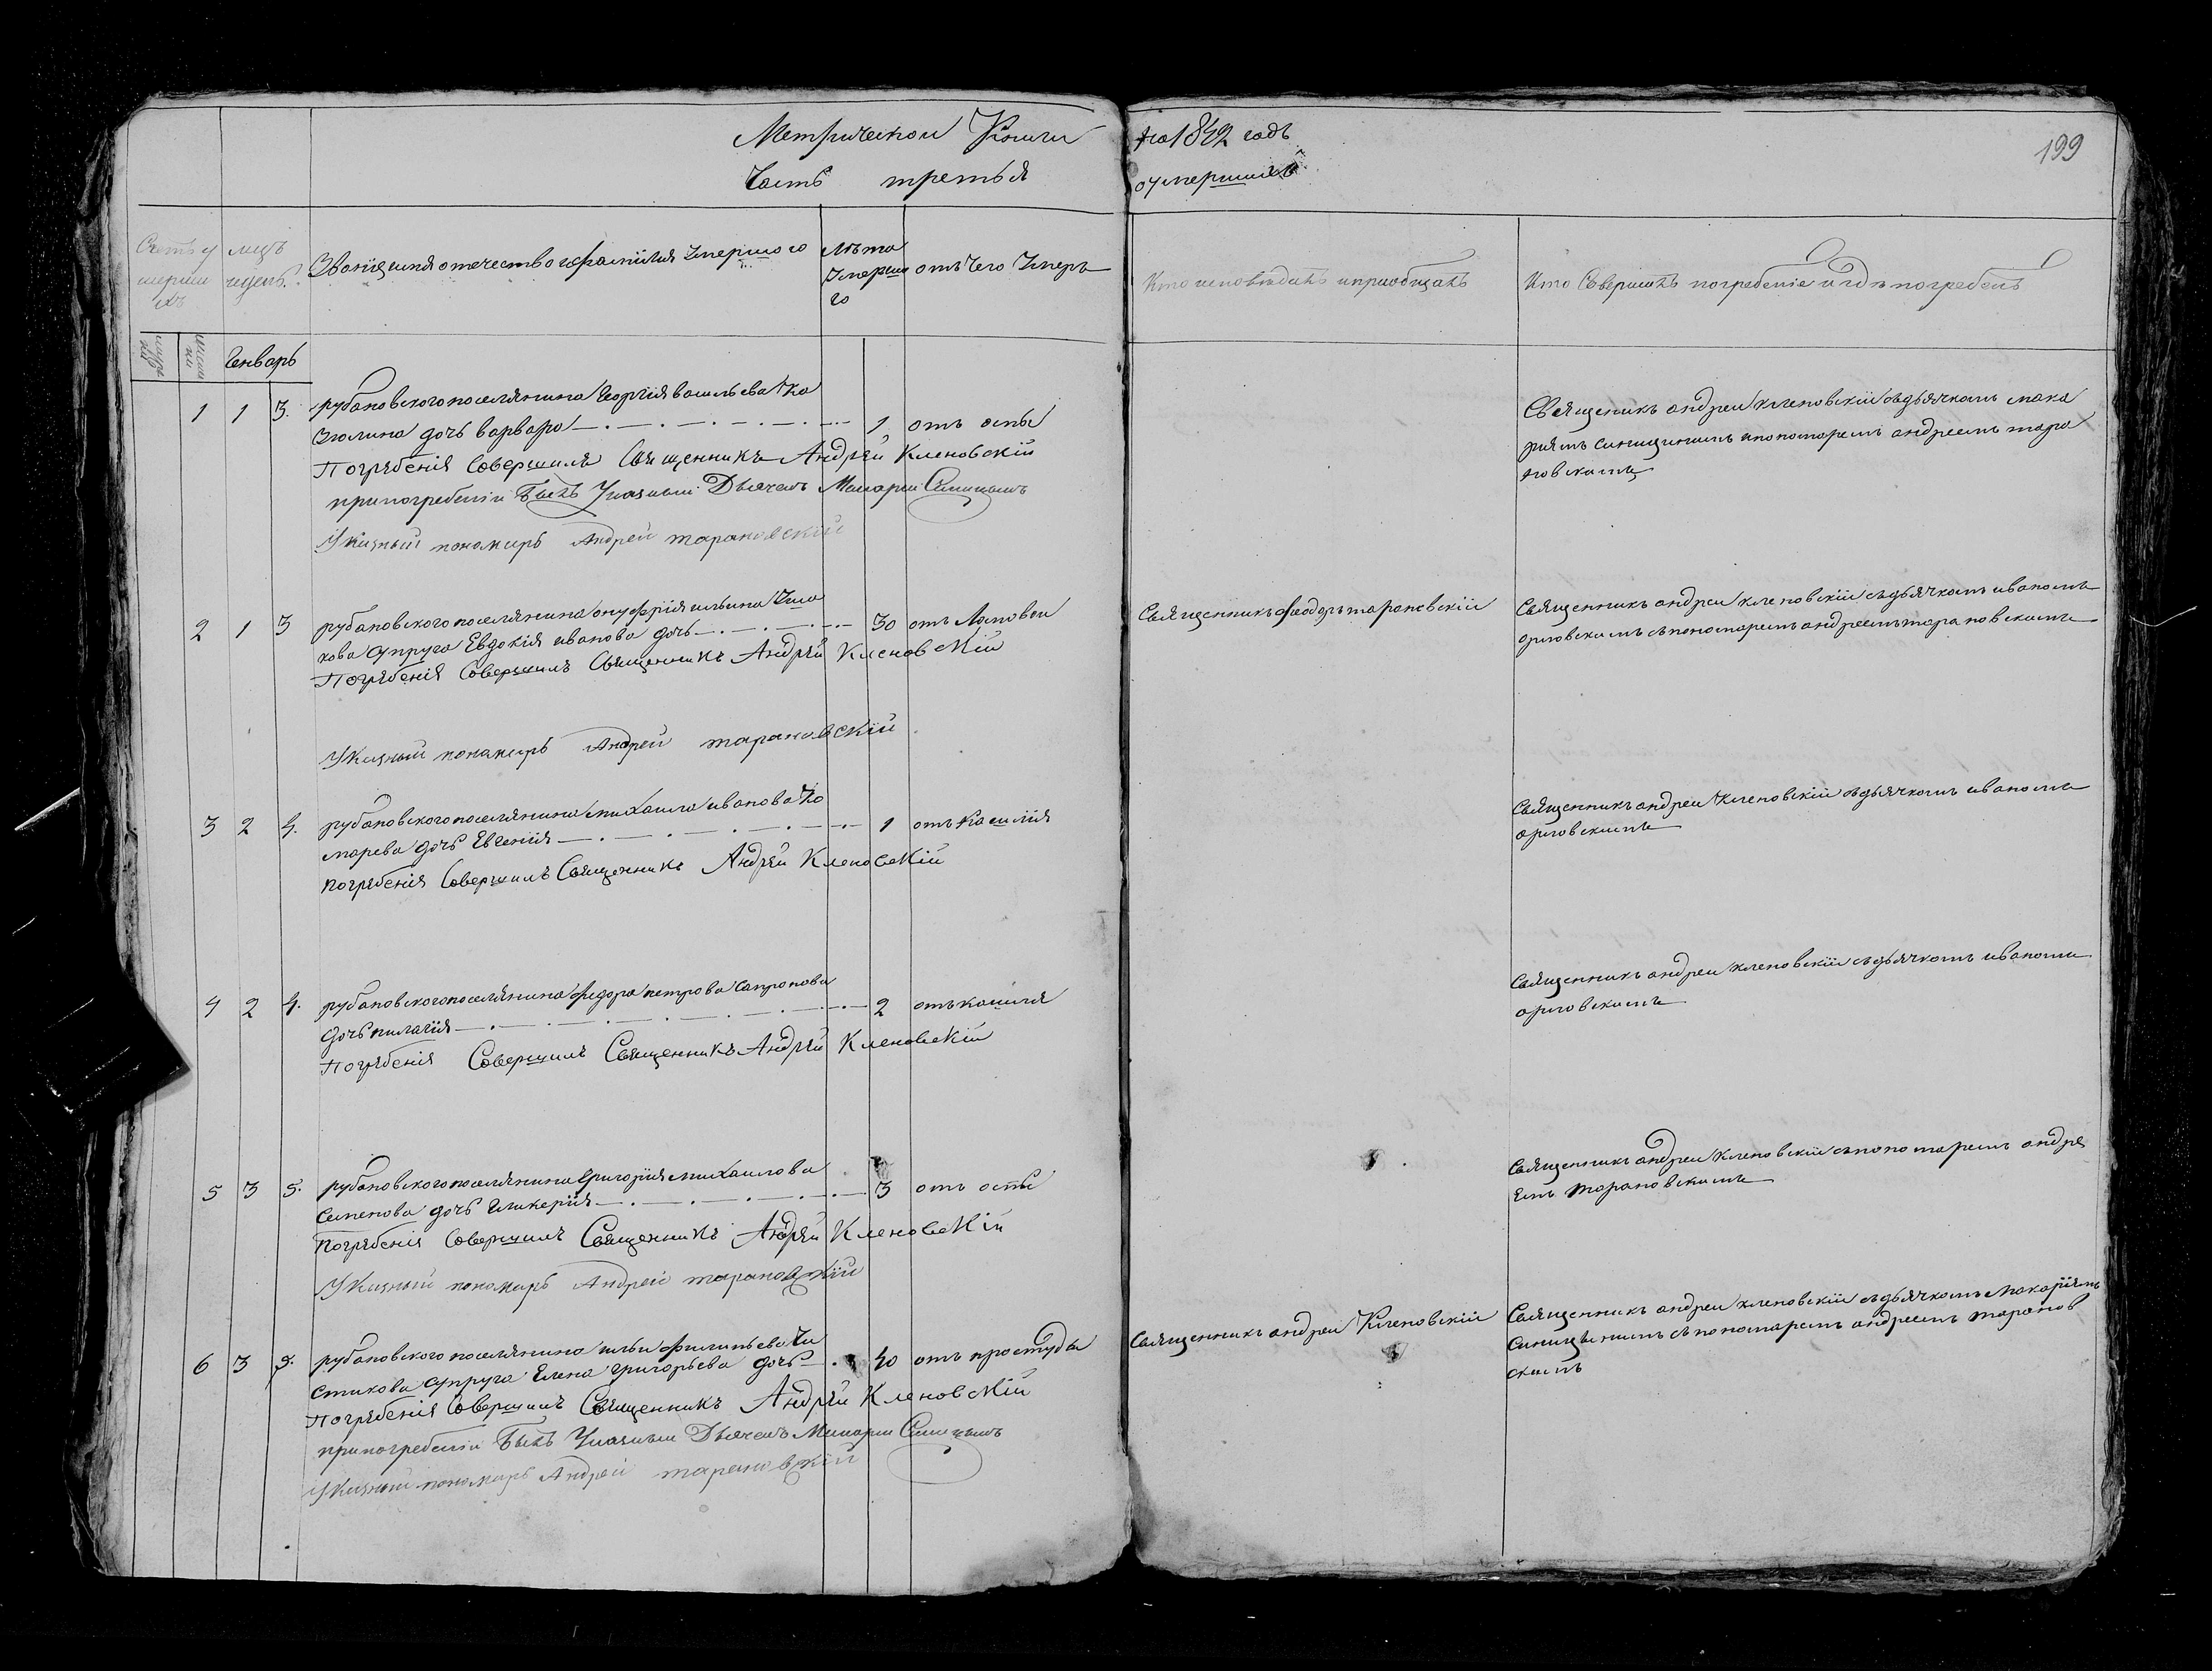 Метрической Книги на 1842 годъ
Часть третья о умершихъ
199
Счетъ у
мерши
хъ
Званїе имя отечество и фамилїя умершого
Лѣта
умерша
го
отъ чего умеръ
Кто исповѣдалъ и приобщалъ
Кто Совершилъ погребенїе и гдѣ погребенъ
Генварь
1 1 3. рубановского поселянина Георгїя васильева Ко
зюлина дочь варвара 1 отъ оспы
Погрѣбенїя Совершилъ Священникъ Андрѣй Кленовскїй
при погребенїи былъ Указный Дьячекъ Макарии Синицынъ
Указный пономарь Андрей тарановскїй
Священикъ андреи кленовскїи съ дьячкомъ мака
рїемъ синицинимъ и пономаремъ андреемъ тара
новскимъ
2 1 3 рубановского поселянина онуфрїя ильина
кова супруга Евдокїя иванова дочь 30
Погрѣбенїя Совершилъ Священникъ Андрѣй Кленовскїй
Указный пономарь Андрей тарановскїй
Священникъ феодоръ тарановскїй
Священникъ андреи кленовскїи съ дьячкомъ иваномъ
орловскимъ съ пономаремъ андреемъ тарановскимъ
3 2 4. рубановского поселянина михаила иванова Ко
марева дочь Евгенїя 1 отъ Кашлїя
погрѣбенїя Совершилъ Священникъ Андрѣй Кленовскїй
Священникъ андреи кленовскїи съ дьячкомъ иваномъ
орловскимъ
4 2 4. рубановского поселянина федора петрова сапронова
дочь пилагїя 2 отъ кашля
Погрѣбенїя Совершилъ Священникъ Андрѣй Кленовскїй
Священникъ андреи кленовскїи съ дьячкомъ иваномъ
орловскимъ
5 3 5. рубановского поселянина Григорїя михаилова
Семенова дочь гликерїя 3 отъ оспы
Погрѣбенїя Совершилъ Священникъ Андрѣй Кленовскїй
Указный пономарь Андрей тарановскїй
Священникъ андреи кленовскїи съ пономаремъ андре
емъ тарановскимъ
6 3 рубановского поселянина ильи филипьева Чи
стикова супруга Елена григорьева дочь 40 отъ простуды
Погрѣбенїя Совершилъ Священникъ Андрѣй Кленовскїй
при погребенїи былъ Указный Дьячекъ Макарии Синицынъ
Указный пономарь Андрей тарановскїй
Священникъ андреи Кленовскїй
Священникъ андреи кленовскїи съ дьячкомъ макарїемъ
синицынимъ съ пономаремъ андреемъ таранов
скимъ